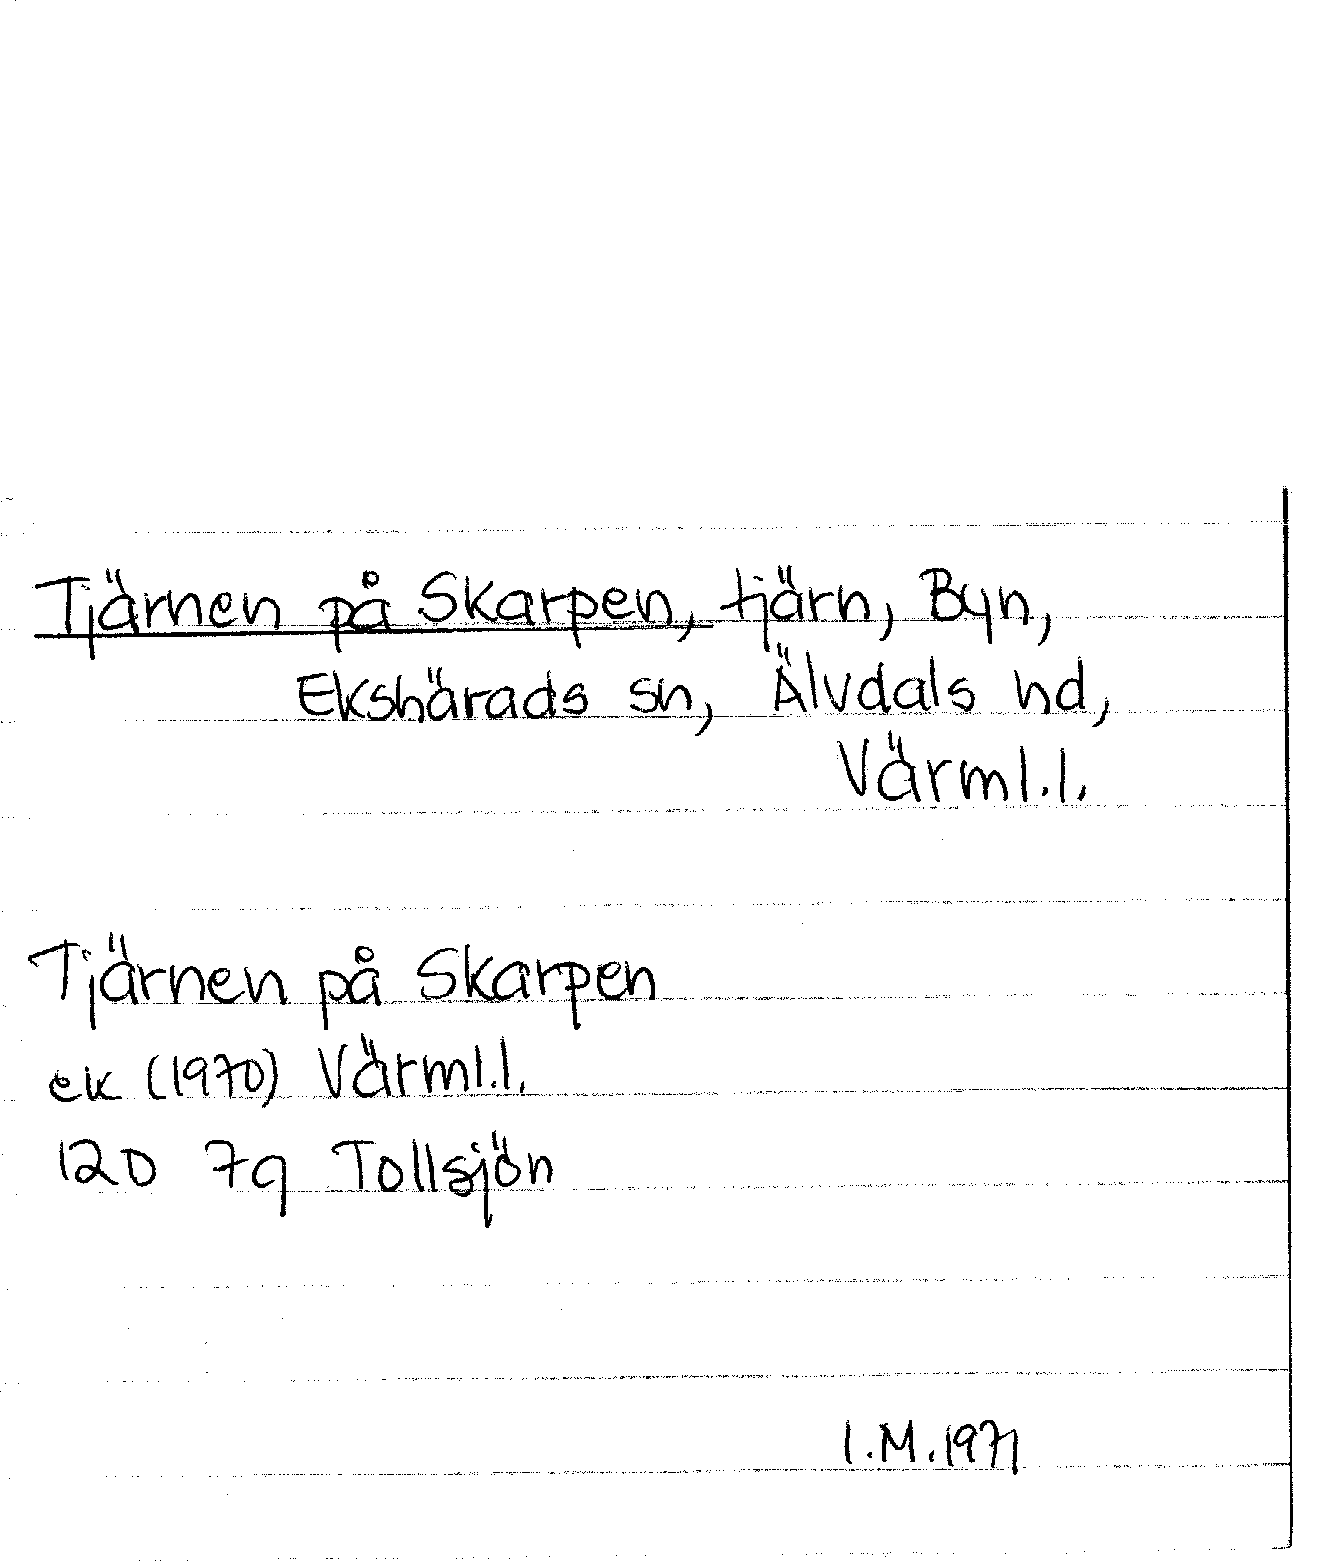 Tjärnen på Skarpen, tjärn, Byn,
Ekshärads sn, Älvdals hd,
Värml.l.
Tjärnen på Skarpen
ek (1970) Värml.l.
12D 7q Tollsjön
I.M.1971